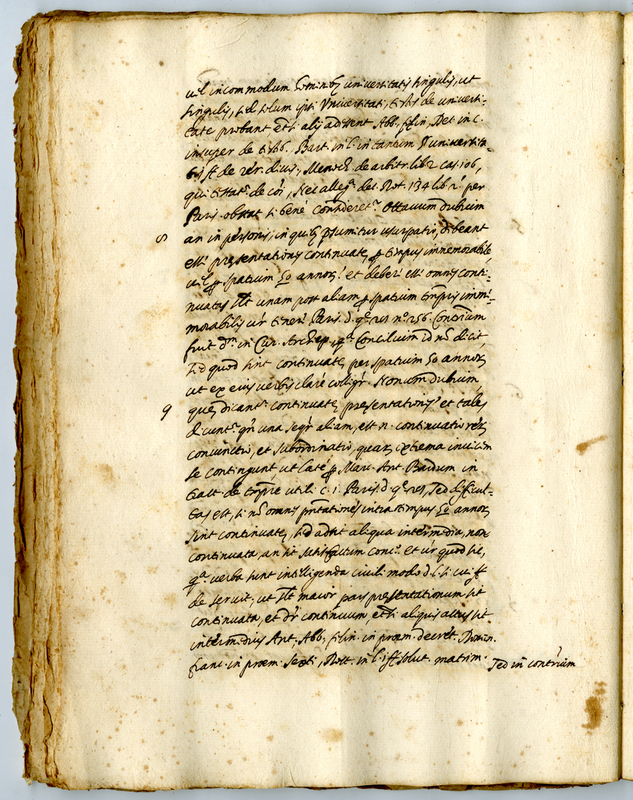 vel incommodum hominibus universitatis singulis, ut
singulis, sed solum ipsi Universitati, testes de universi-
tate probant etsi alij adessent Abb. felin, Det. in c.
insuper de testib. Bart. in l. in tantum § universita-
tis ff de rer. divis, Menoch. de arbitr. lib 2 cas. 106,
qui testat.r de cõi, Nec alleg.a dec. Rot. 134 lib. 2. per
Paris. obstat si bené consideret.r Ottavum dubium
8
an in personis, in quib. psumitur usurpatio, debeant
esse presentationes continuate, p tempus immemorabile,
vel p spatium 50 annor. et deberi esse omnes conti-
nuatas unam post aliam p spatium tempis imme-
morabilis Paris. d. q. n.o 256. Contrarium
fuit in Cur. Archiep. q.a Concilium id nõ dicit,
sed quod sint continuate, per spatium 50 annor.
ut ex eius verbis claré colligr. Nonum dubium,
9
que dicant.r continuate, presentationes et tales
dicunt.r qñ una seqr aliam, est n. continuatio rei
coniunctio, et subordinatio, quar. extrema invicem
se contingunt ut laté p Marc. Ant. Baidum in
tract. de tempre utili. c. 1. Paris. d. q. sed difficul-
tas est, si nõ omnes pntationes intra tempus 50 annor.
sint continuate, sed adsit aliqua intermedia, non
continuata, an sit satisfactum conc. et vr quod sic,
q.a verba sunt intelligenda civili modo d. l. si cui ff
de servit, ut maior pars presentationum sit
continuata, et dr continuum etsi aliquis actus sit
intermedius Ant. Abb, felin. in proem. decret. Domin.
franc. in proem. Sexti, in l. 1 ff solut. matrim.
Sed in contrium